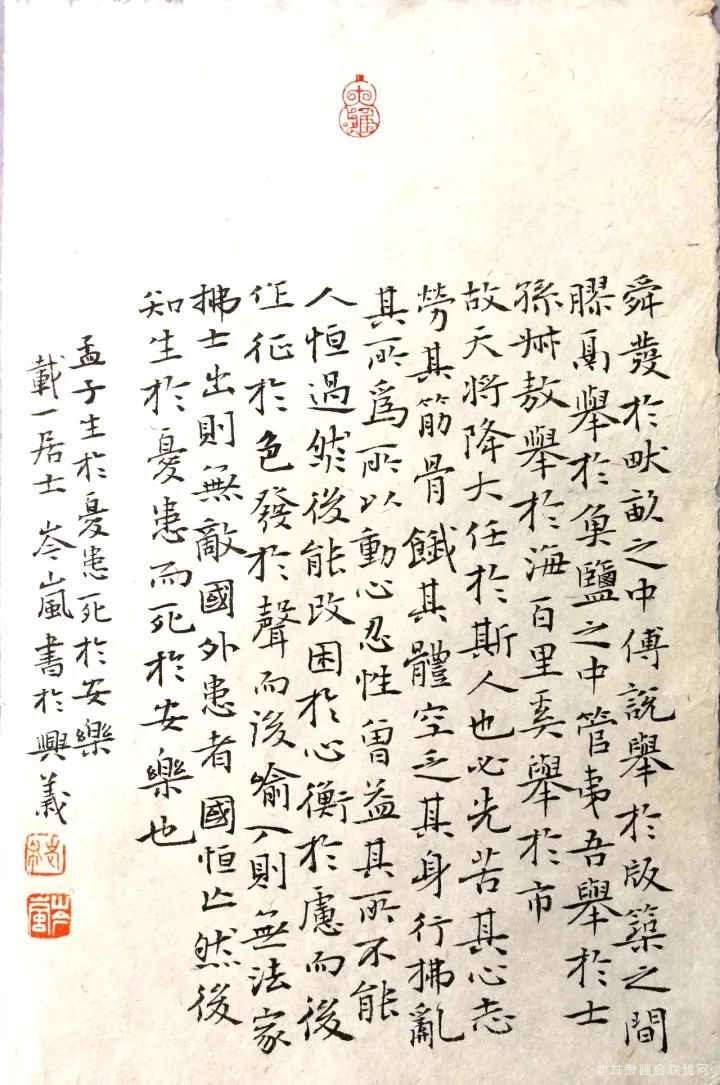 舜發於畎畝之中傅說舉於版築之間
膠鬲舉於魚鹽之中管夷吾舉於士
孫叔敖舉於海百里奚舉於市
故天將降大任於斯人也必先苦其心志
勞其筋骨餓其體空乏其身行拂亂
其所爲所以動心忍性曾益其所不能
人恒過然後能改困於心衡於慮而後
作征於色發於聲而後喻入則無法家
拂士出則無敵國外患者國恒亡然後
知生於憂患而死於安樂也
孟子生於憂患死於安樂
載一居士岑嵐書於興義
@甘肃画廊联盟网